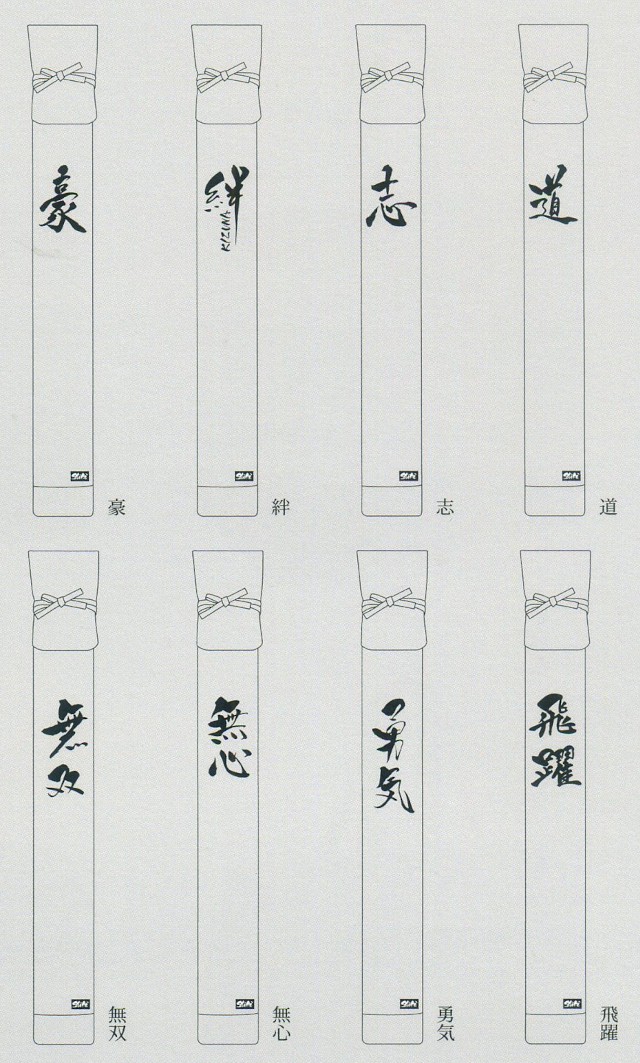 豪
絆
KIZUNA
志
道
豪
絆
志
道
無双
無心
勇気
飛躍
無双
無心
勇気
飛躍